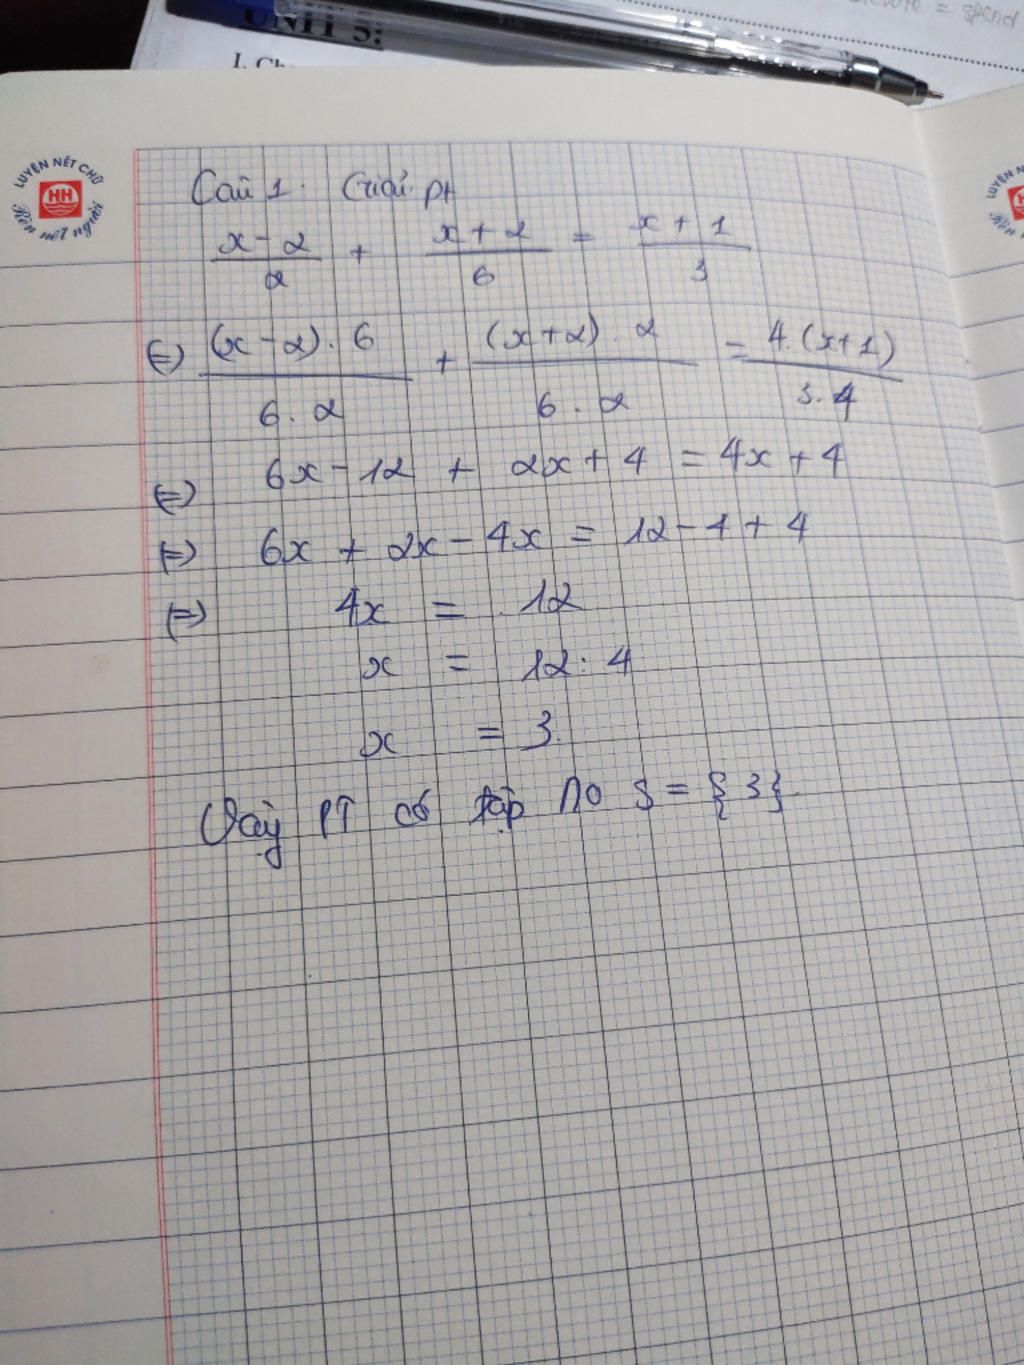 = spend
UNIT 5:
I. Ch
LUYỆN NÉT CHỮ
HH
Rèn nết người
LUYỆN N
Câu 1. Giải pt
x - 2 / 2 + x + 2 / 6 = x + 1 / 3
(=) (x - 2) . 6 / 6 . 2 + (x + 2) . 2 / 6 . 2 = 4. (x+1) / 3. 4
(=) 6x - 12 + 2x + 4 = 4x + 4
(=) 6x + 2x - 4x = 12 - 4 + 4
(=) 4x = 12
x = 12 : 4
x = 3.
Vậy PT có tập no S = { 3}.